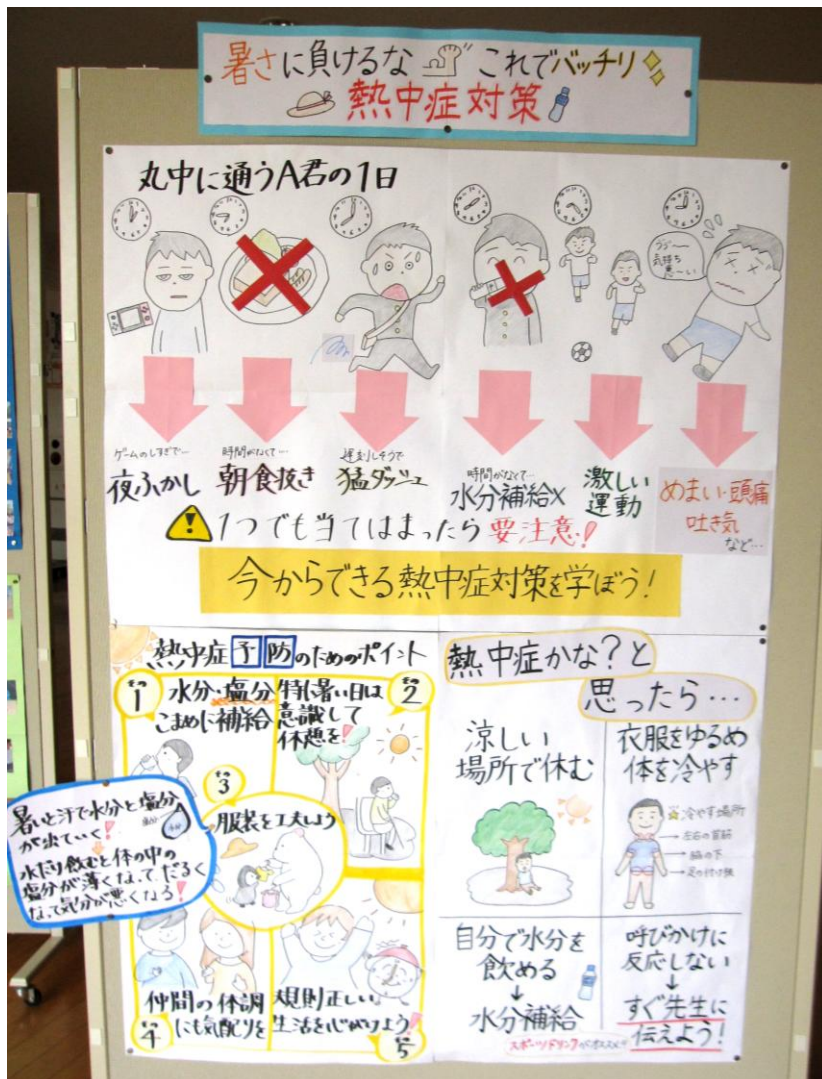 暑さに負けるな これでバッチリ
熱中症対策
丸中に通うA君の1日
うゔ〜
気持ち
悪〜い
ゲームのしすぎで…
夜ふかし
時間がなくて…
朝食抜き
遅刻しそうで
猛ダッシュ
時間がなくて…
水分補給×
激しい
運動
めまい・頭痛
吐き気
など…
1つでも当てはまったら要注意!
今からできる熱中症対策を学ぼう!
熱中症予防のためのポイント
その1
水分・塩分
こまめに補給
その2
特に暑い日は
意識して
休憩を!
その3
服装を工夫しよう
暑いと汗で水分と塩分
が出ていく!
水だけ飲むと体の中の
塩分が薄くなって、だるく
なって気分が悪くなる!
塩分
水分
その4
仲間の体調
にも気配りを
その5
規則正しい
生活を心がけよう!
熱中症かな?と
思ったら…
涼しい
場所で休む
衣服をゆるめ
体を冷やす
冷やす場所
→左右の首筋
→脇の下
→足の付け根
自分で水分を
飲める
↓
水分補給
スポーツドリンクがオススメ!!
呼びかけに
反応しない
↓
すぐ先生に
伝えよう!